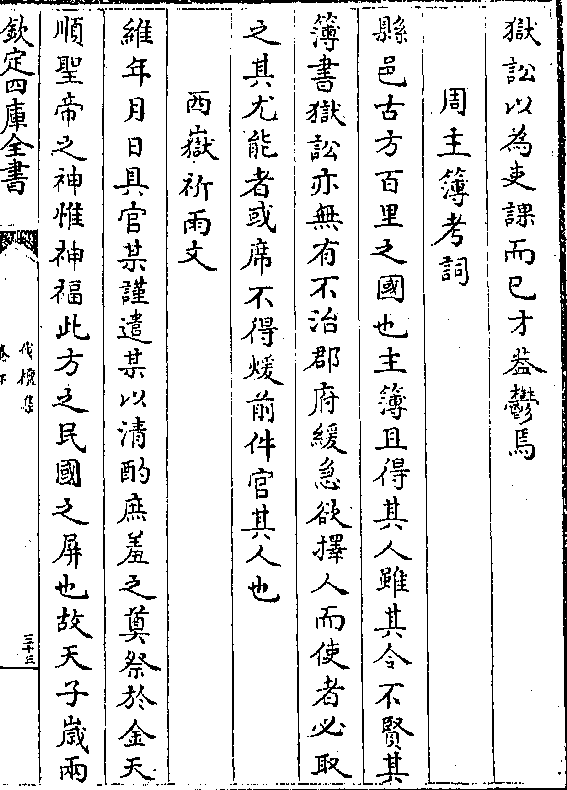 獄訟以為吏課而已才益鬱焉
周主簿考詞
縣邑古方百里之國也主簿且得其人雖其令不賢其
簿書獄訟亦無有不治郡府緩急欲擇人而使者必取
之其尤能者或席不得煖前件官其人也
西嶽祈雨文
維年月日具官某謹遣某以清酌庶羞之奠祭於金天
順聖帝之神惟神福此方之民國之屏也故天子歲兩
欽定四庫全書
伐檀集
卷下
三十三